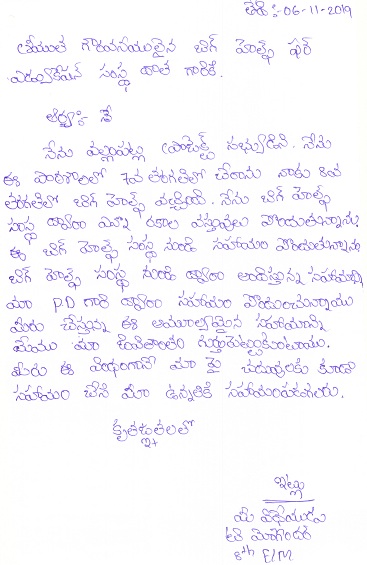 తేది :- 06-11-2019
గౌరవనీయులైన బిగ్ హెల్ప్ ఫర్
ఎడ్యుకేషన్ సంస్థ దాత గారికి.
ఆర్యా :-
నేను
ఈ పాఠశాలలో 7వ తరగతిలో చేరాను నాకు 8వ
తరగతిలో బిగ్ హెల్ప్ వచ్చింది. నేను బిగ్ హెల్ప్
సంస్థ ద్వారా ఎన్నో రకాల వస్తువులు పొందుతున్నాను.
ఈ బిగ్ హెల్ప్ సంస్థ నుండి సహాయం పొందుతున్నాను
బిగ్ హెల్ప్ సంస్థ నుండి ద్వారా అందిస్తున్న సహాయాన్ని
మా P.D గారి ద్వారా సహాయం
మీరు చేస్తున్న ఈ అమూల్యమైన సహాయాన్ని
మేము మా జీవితాంతం గుర్తుపెట్టుకుంటాము.
మీరు ఈ విధంగానే మా పై చదువులకు కూడా
సహాయం చేసి మా ఉన్నతికి సహాయపడగలరు.
కృతజ్ఞతలతో
ఇట్లు
మీ విధేయుడు
8th E/M